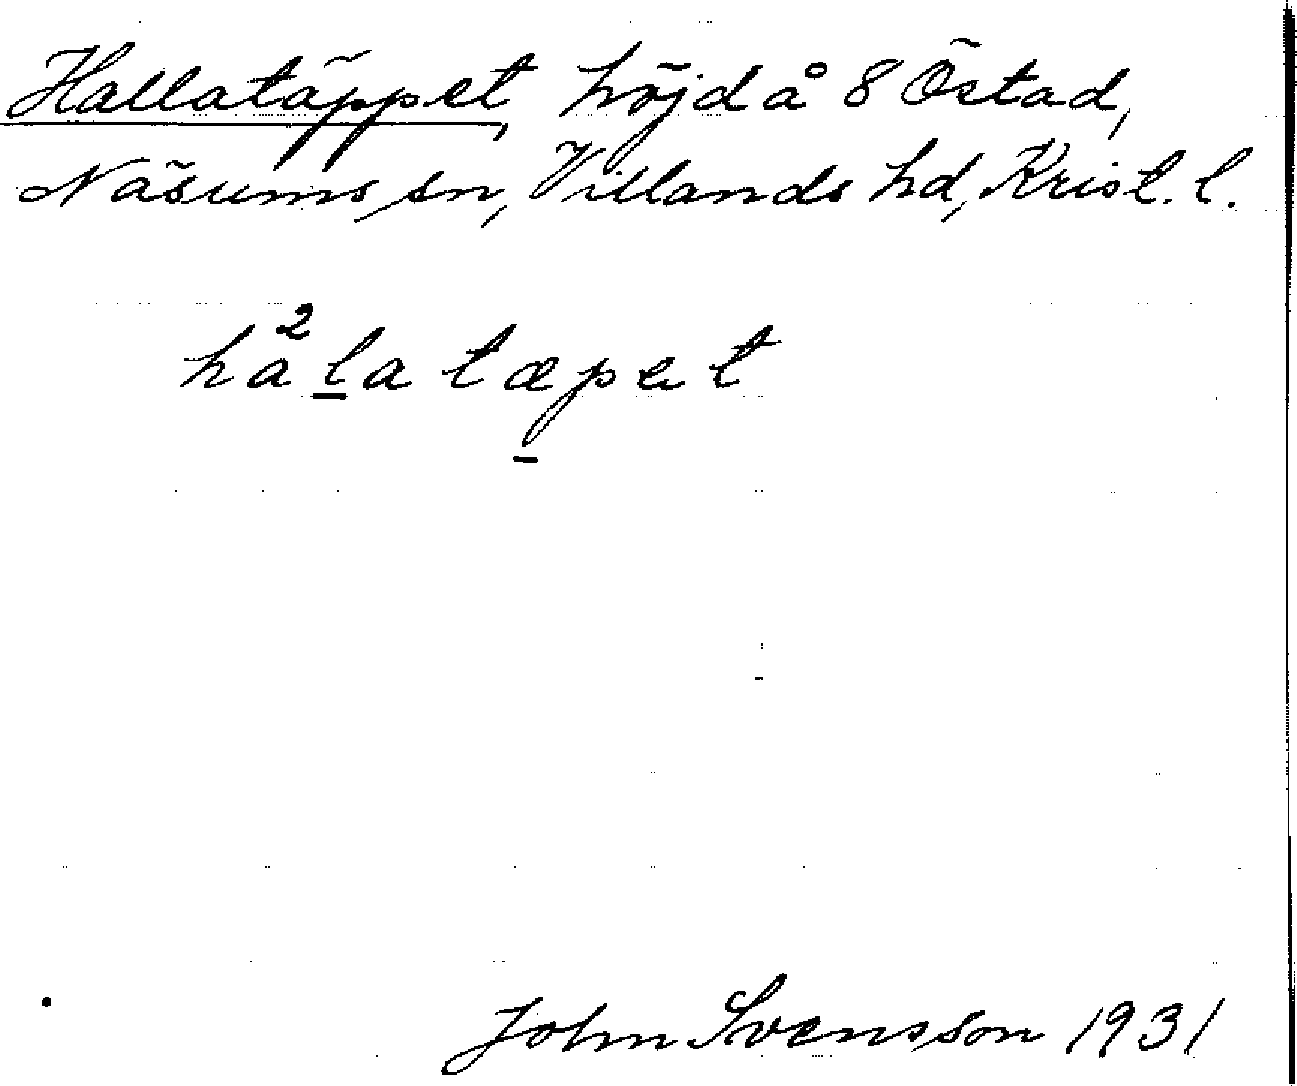 Hallatäppet, höjd å 8 Östad,
Näsums sn, Villands hd, Krist. l.
ha²latæpet
John Svensson 1931